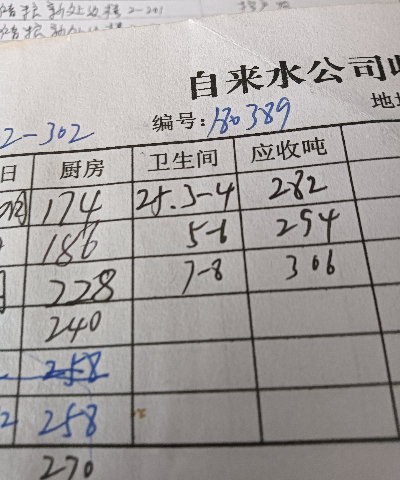 自来水公司收
2-302
编号: 180389
地址
日 厨房 卫生间 应收吨
174 25.3-4 282
186 5-6 294
228 7-8 306
240
258
2 258
270